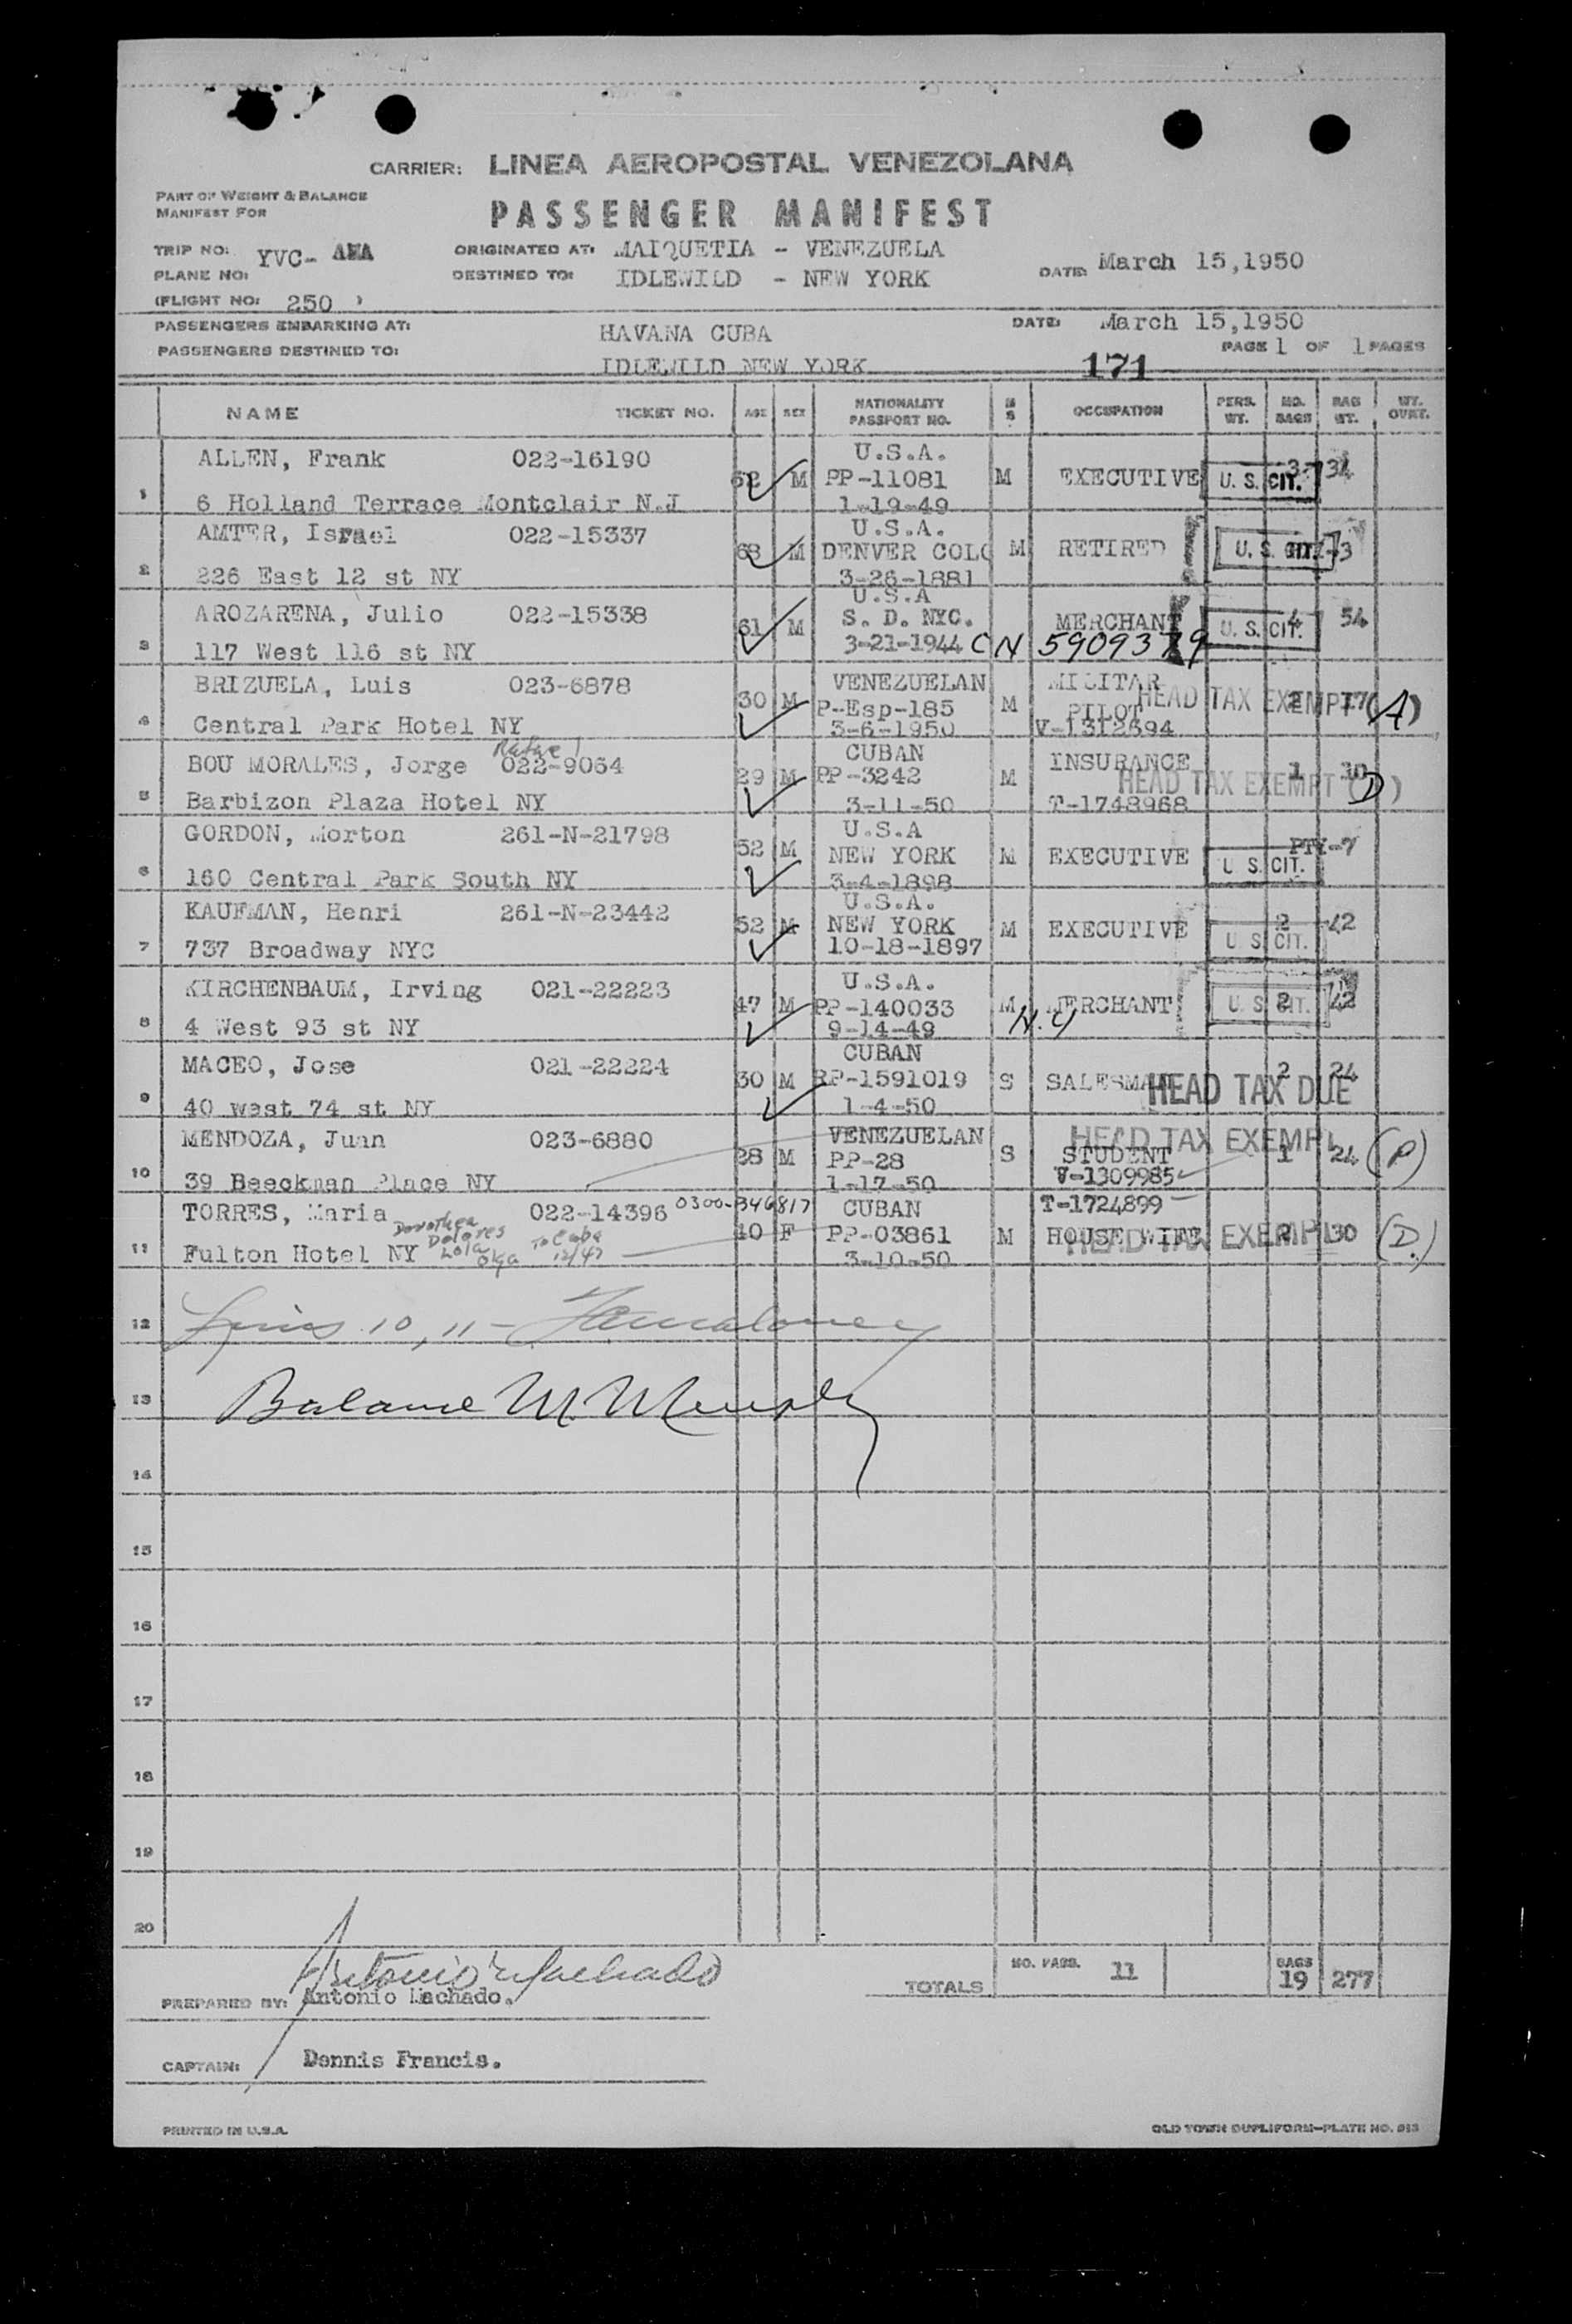 CARRIER: LINEA AEROPOSTAL VENEZOLANA
PART OF WEIGHT & BALANCE
MANIFEST FOR
PASSENGER MANIFEST
TRIP NO: YVC- ORIGINATED AT: MAIQUETIA - VENEZUELA
PLANE NO: DESTINED TO: IDLEWILD - NEW YORK DATE: March 15,1950
(FLIGHT NO: 250 )
PASSENGERS EMBARKING AT: HAVANA CUBA DATE: March 15,1950
PASSENGERS DESTINED TO: IDLEWILD NEW YORK 171 PAGE 1 OF 1 PAGES
NAME TICKET NO. AGE SEX NATIONALITY PASSPORT NO. M S OCCUPATION PERS. WT. NO. BAGS BAG WT. WT. OVRT.
ALLEN, Frank 022-16190 U.S.A.
62 M PP-11081 M EXECUTIVE U. S. CIT. 3 34
1 6 Holland Terrace Montclair N.J 1-19-49
AMTER, Israel 022-15337 U.S.A.
68 M DENVER COLO M RETIRED U. S. CIT. 3
2 226 East 12 st NY 3-26-1881
AROZARENA, Julio 022-15338 U.S.A
61 M S. D. NYC. MERCHANT U. S. CIT. 4 54
3 117 West 116 st NY 3-21-1944 CN 5909379
BRIZUELA, Luis 023-6878 VENEZUELAN MILITAR
30 M P-Esp-185 M PILOT HEAD TAX EXEMPT 2 17 (A)
4 Central Park Hotel NY 3-6-1950 V-1312694
BOU MORALES, Jorge Rafael 022-9054 CUBAN INSURANCE
29 M PP-3242 M HEAD TAX EXEMPT 1 10 (D)
5 Barbizon Plaza Hotel NY 3-11-50 T-1748968
GORDON, Morton 261-N-21798 U.S.A
52 M NEW YORK M EXECUTIVE U. S. CIT. PTY-7
6 160 Central Park South NY 3-4-1898
KAUFMAN, Henri 261-N-23442 U.S.A.
52 M NEW YORK M EXECUTIVE U. S. CIT. 2 42
7 737 Broadway NYC 10-18-1897
KIRCHENBAUM, Irving 021-22223 U.S.A.
47 M PP-140033 M MERCHANT U. S. CIT. 2 42
8 4 West 93 st NY 9-14-49 N.Y
MACEO, Jose 021-22224 CUBAN
30 M RP-1591019 S SALESMAN HEAD TAX DUE 2 24
9 40 west 74 st NY 1-4-50
MENDOZA, Juan 023-6880 VENEZUELAN HEAD TAX EXEMPT
28 M PP-28 S STUDENT 1 24 (P)
10 39 Beeckman Place NY 1-17-50 V-1309985
TORRES, Maria 022-14396 0300-346817 CUBAN T-1724899
Dorothea Dolores Lola Olga To Cuba 12/47
40 F PP-03861 M HOUSE WIFE HEAD TAX EXEMPT 2 30 (D.)
11 Fulton Hotel NY 3-10-50
12 Lines 10, 11 -
13 Balance M
14
15
16
17
18
19
20
Antonio Machado
PREPARED BY: Antonio Machado. TOTALS NO. PASS. 11 BAGS 19 277
CAPTAIN: Dennis Francis.
PRINTED IN U.S.A. OLD TOWN DUPLIFORM-PLATE NO. 513